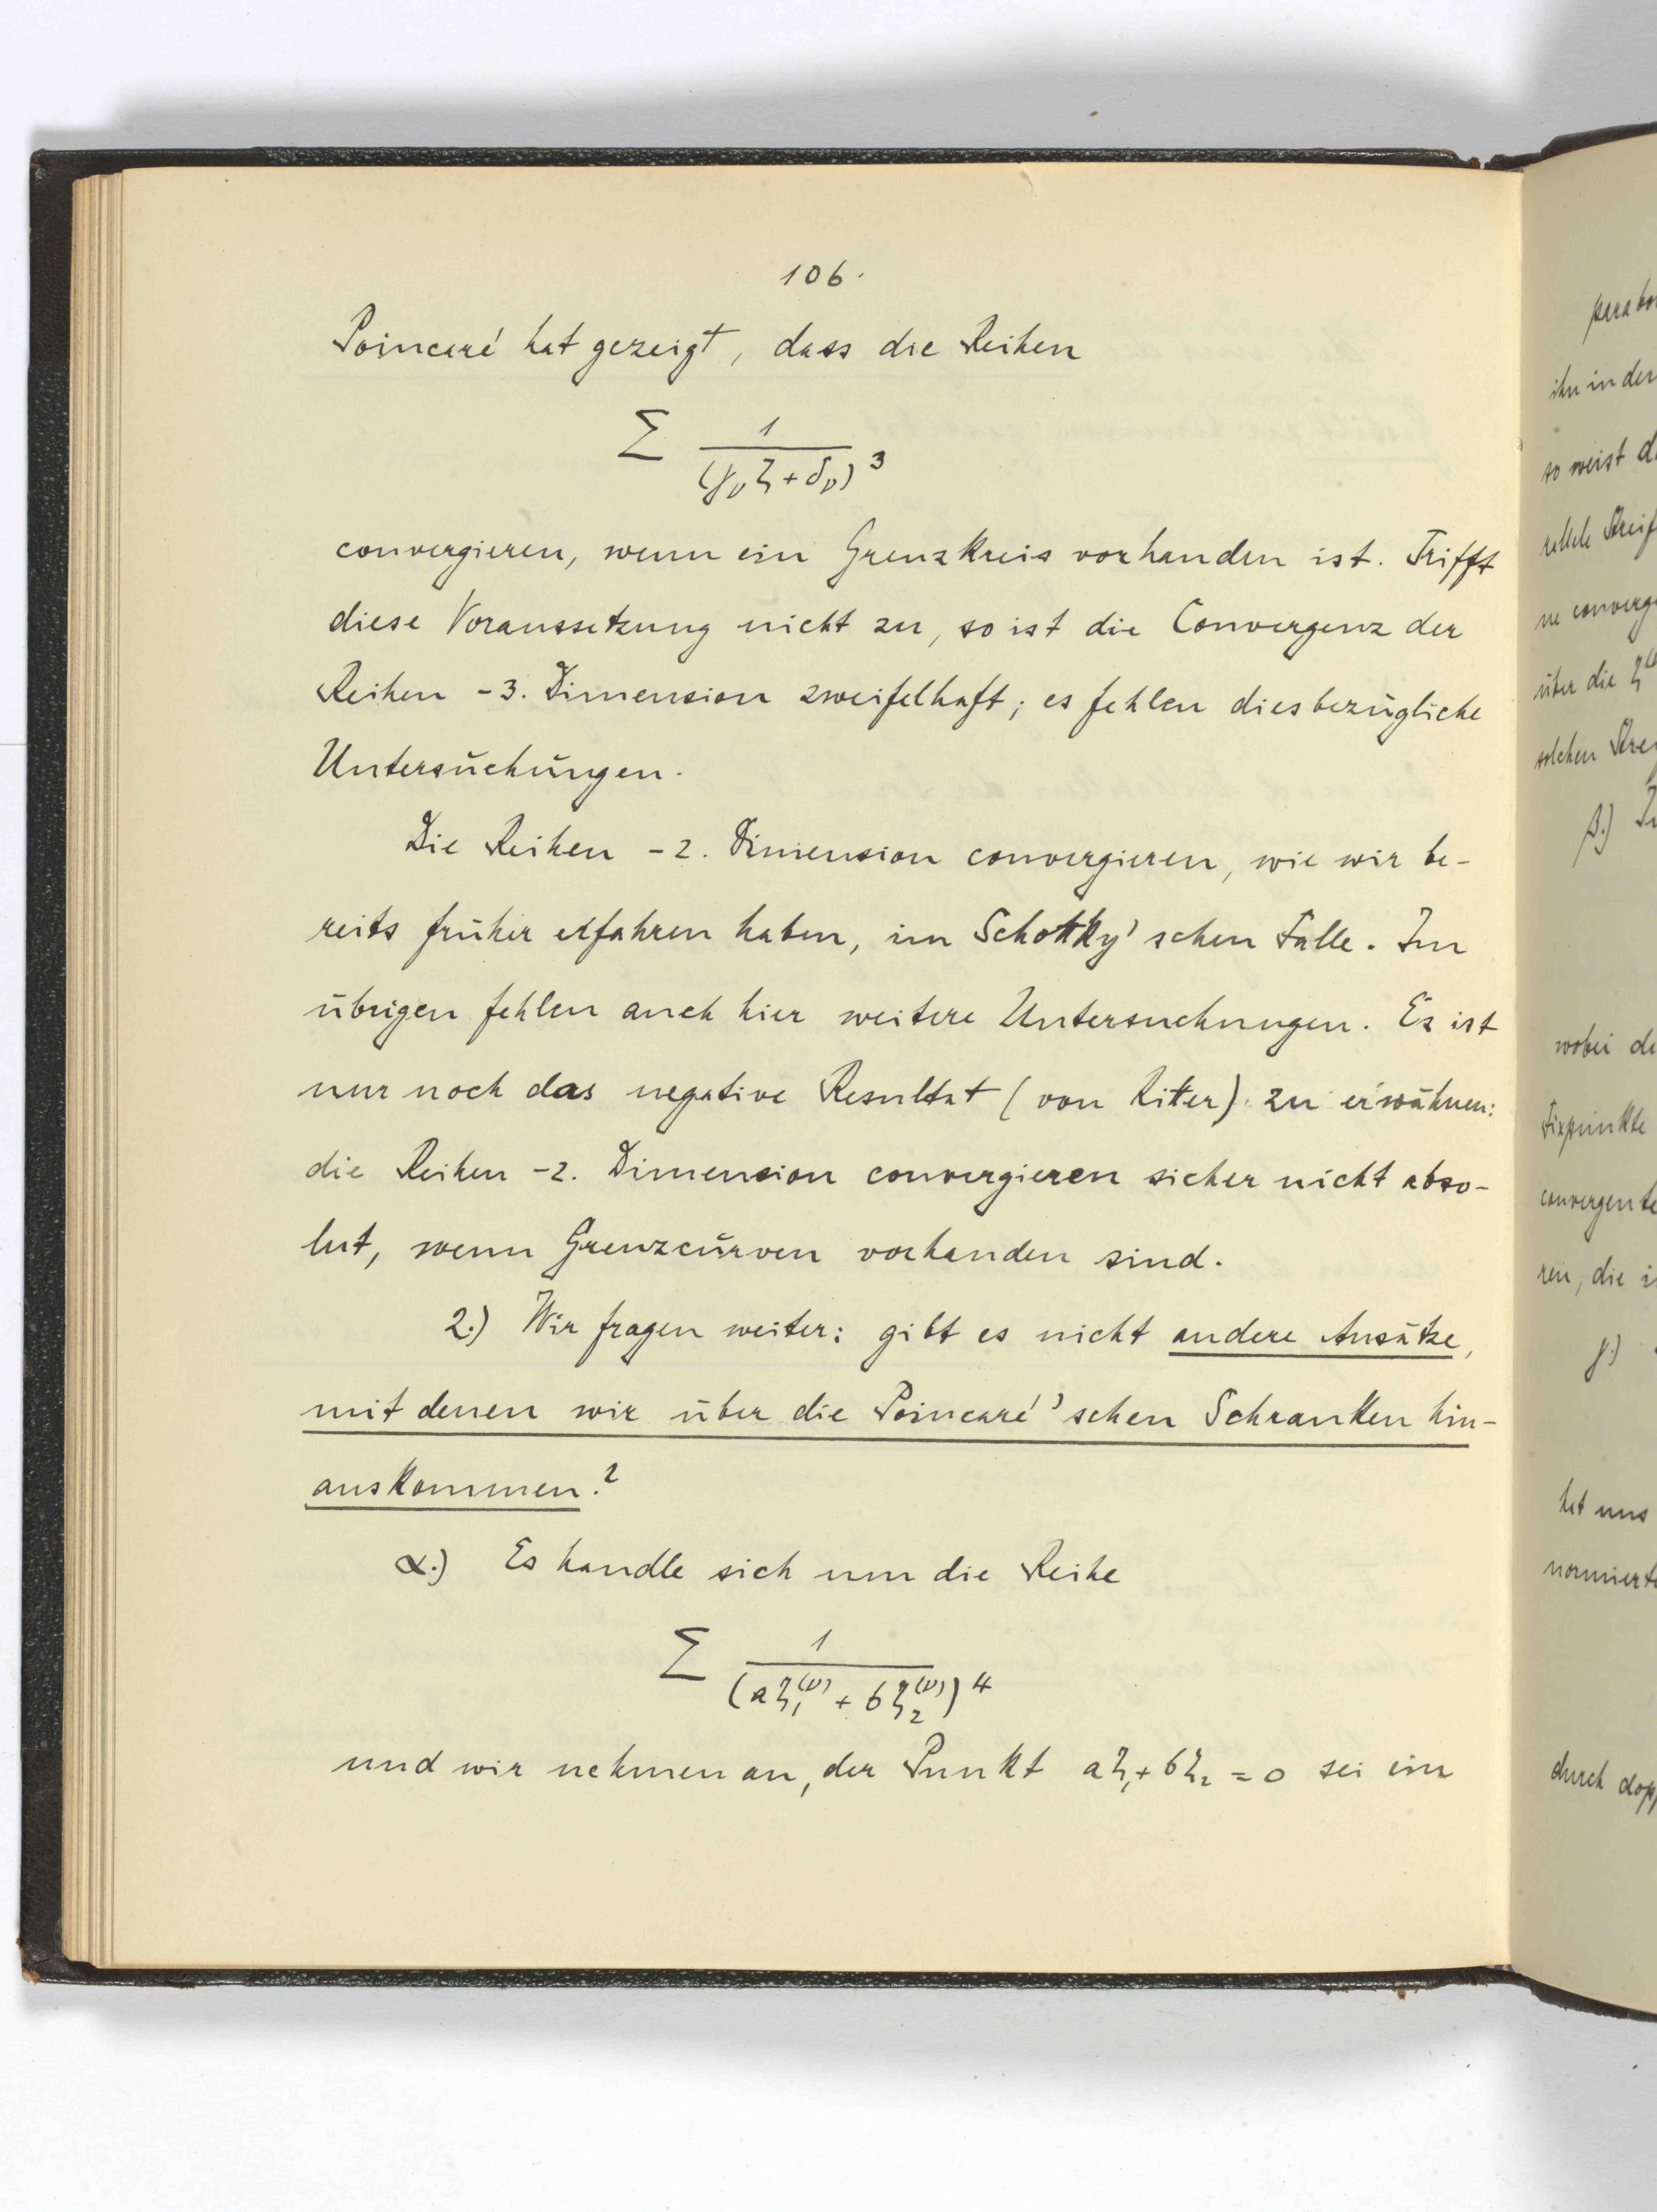 106.
Poincaré hat gezeigt, dass die Reihen
Σ 1/(γ_ν ζ + δ_ν)^3
convergieren, wenn ein Grenzkreis vorhanden ist. Trifft
diese Voraussetzung nicht zu, so ist die Convergenz der
Reihen -3. Dimension zweifelhaft; es fehlen diesbezügliche
Untersuchungen.
Die Reihen -2. Dimension convergieren, wie wir be-
reits früher erfahren haben, im Schottky'schen Falle. Im
übrigen fehlen auch hier weitere Untersuchungen. Es ist
nur noch das negative Resultat (von Ritter) zu erwähnen:
die Reihen -2. Dimension convergieren sicher nicht abso-
lut, wenn Grenzcurven vorhanden sind.
2.) Wir fragen weiter: gibt es nicht andere Ansätze,
mit denen wir über die Poincaré'schen Schranken hin-
auskommen?
α.) Es handle sich um die Reihe
Σ 1/(aζ_1^(ν) + bζ_2^(ν))^4
und wir nehmen an, der Punkt aζ_1 + bζ_2 = 0 sei ein
ihn in der
so weist
über die ζ
solchen
β.)
wobei
Fixpunkte
convergente
ren, die
γ.)
het uns
normierte
durch